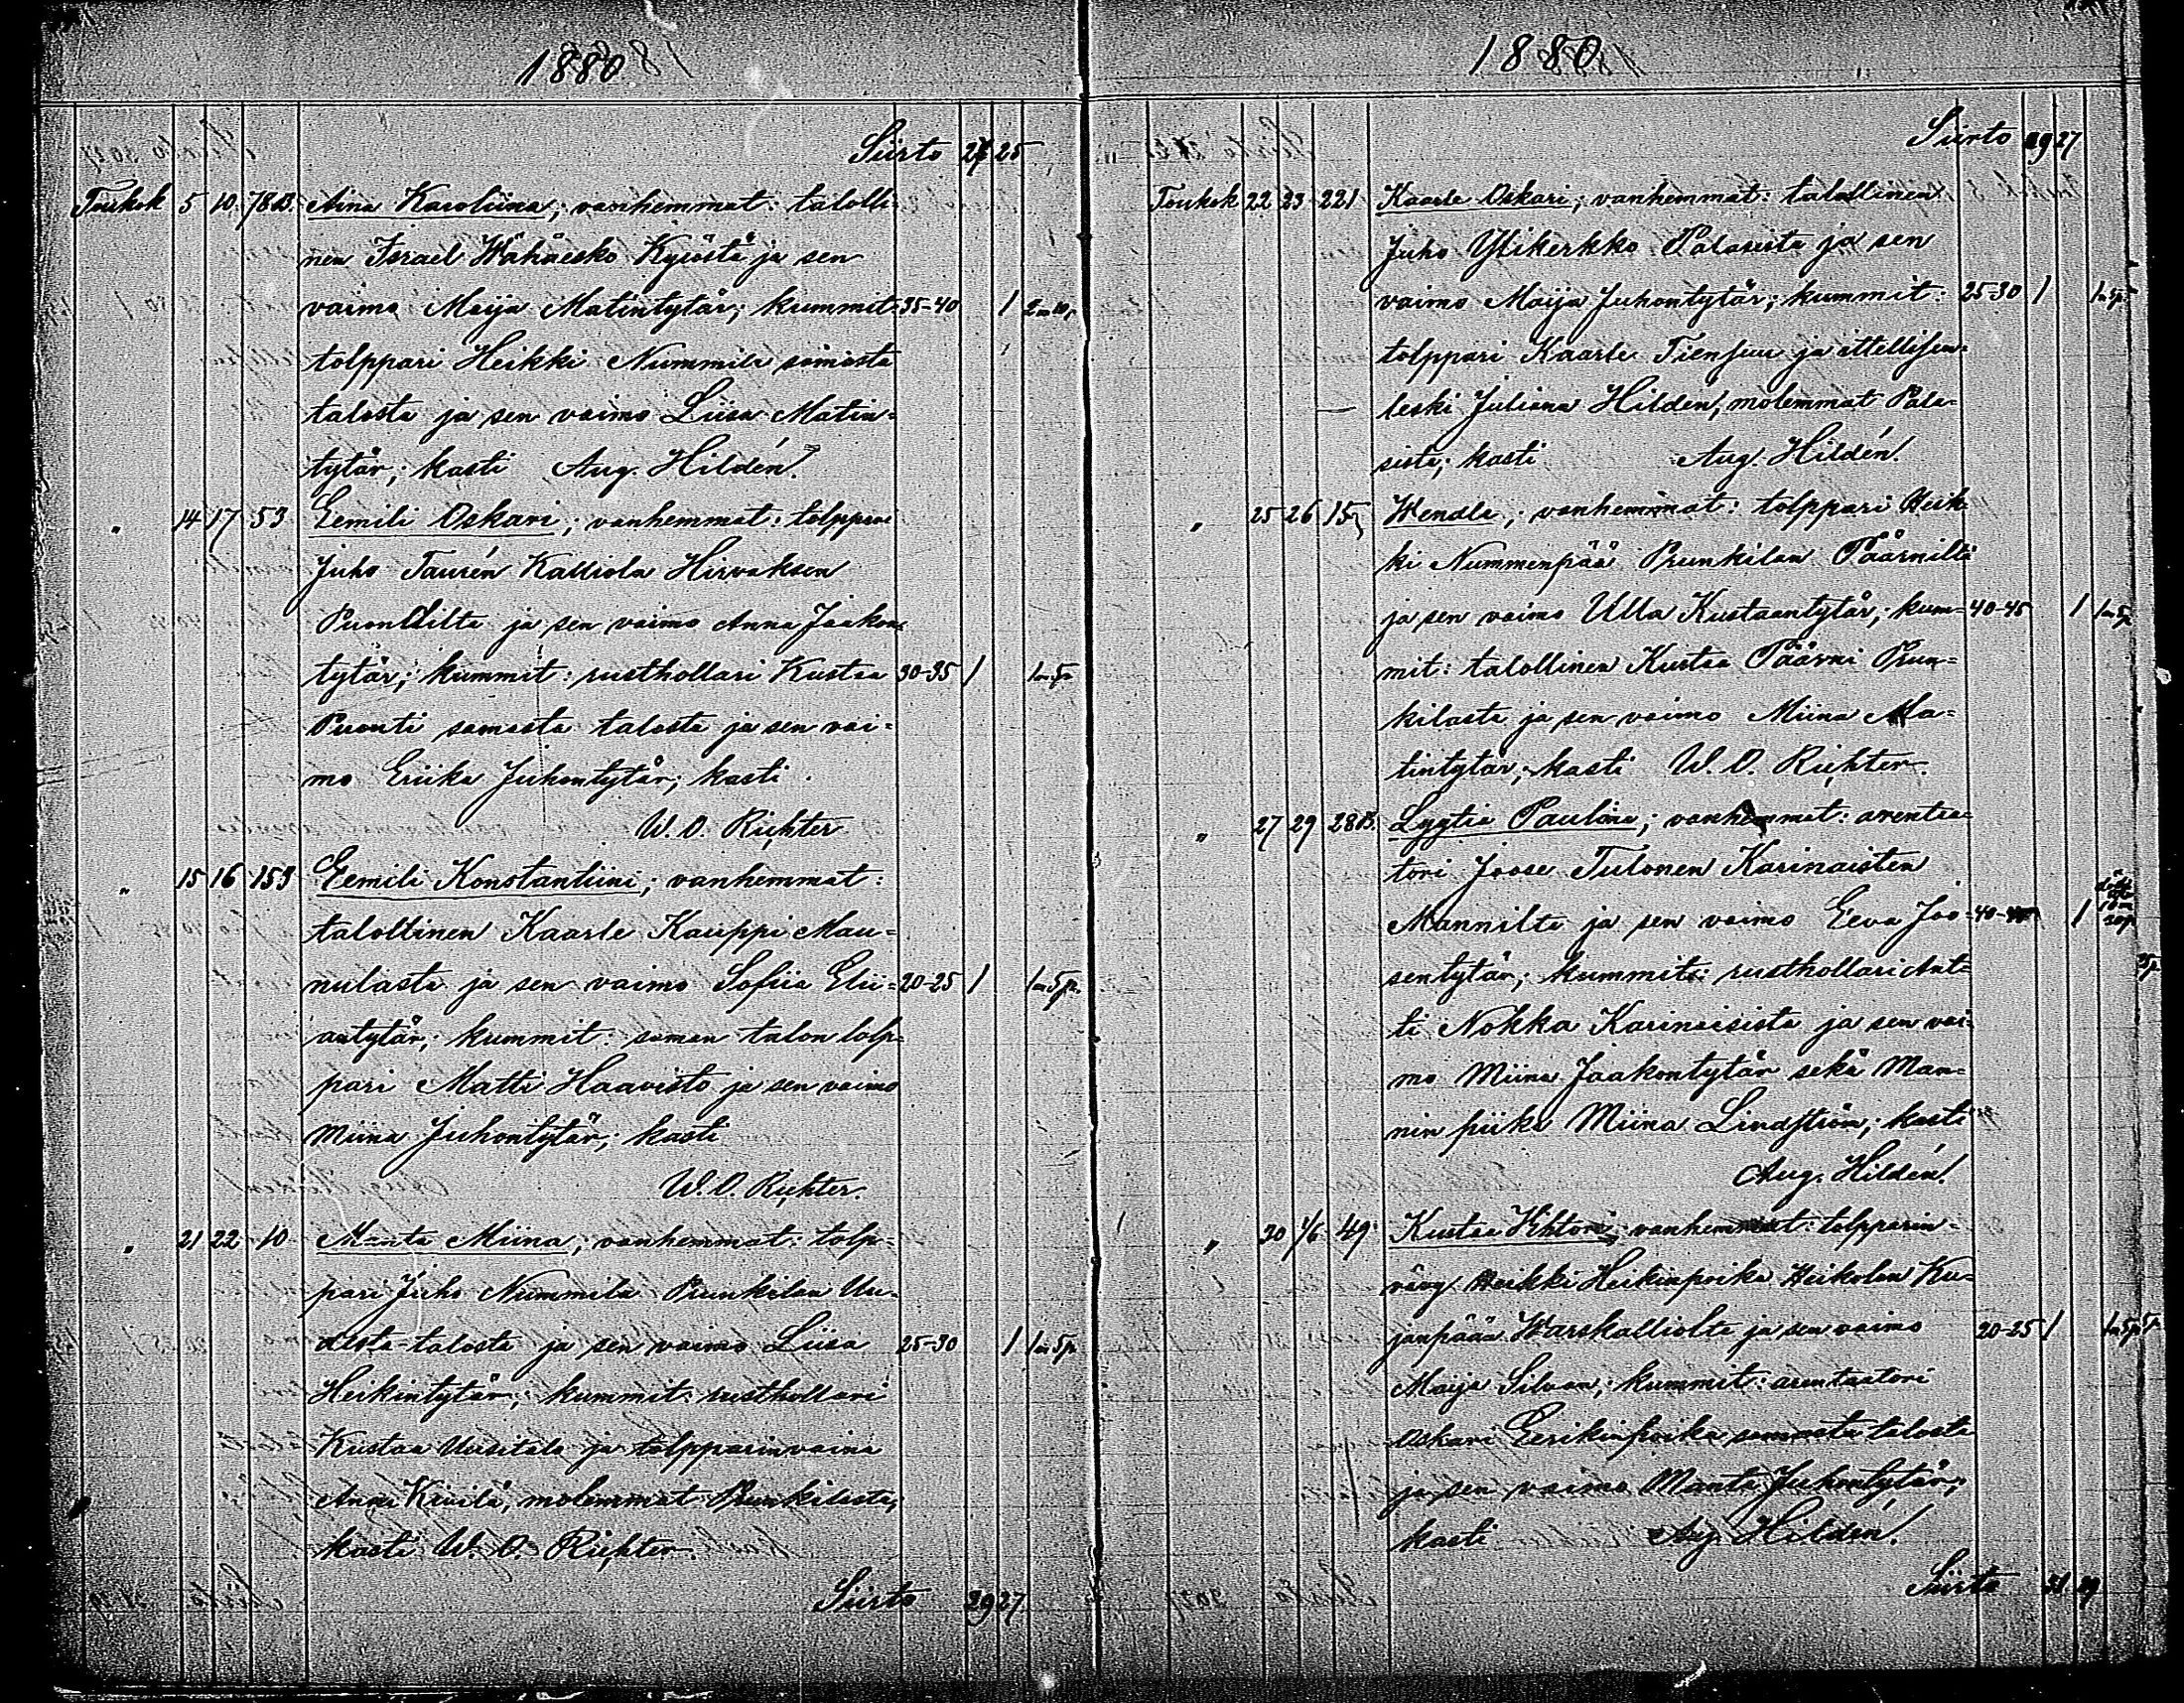 1880
Siirto 27 25
Toukok 5 10 78B. Aina Karoliina; vanhemmat: talolli-
nen Israel Wähäesko Kyröstä ja sen
vaimo Maija Matintytär; kummit: 35-40 1 2m 10p
tolppari Heikki Nummila samasta
talosta ja sen vaimo Liisa Matin=
tytär; kasti Aug. Hildén.
" 14 17 53 Eemili Oskari; vanhemmat: tolppari
Juho Taurén Kalliola Hirvaksen
Puontilta ja sen vaimo Anna Jaakon=
tytär; kummit: rusthollari Kustaa 30-35 1 1m 5p
Puonti samasta talosta ja sen vai=
mo Eriika Juhontytär; kasti
W. O. Richter
" 15 16 153 Eemili Konstantiini; vanhemmat:
talollinen Kaarle Kauppi Mau=
nulasta ja sen vaimo Sofiia Elii= 20-25 1 1m 5p.
antytär; kummit: saman talon tolp=
pari Matti Haavisto ja sen vaimo
Miina Juhontytär; kasti
W. O. Richter.
" 21 22 10 Manta Miina; vanhemmat: tolp=
pari Juho Nummila Prunkilan Uu=
desta-talosta ja sen vaimo Liisa 25-30 1 1m 5p
Heikintytär; kummit: rusthollari
Kustaa Uusitalo ja tolpparinvaimo
Anna Kivilä, molemmat Prunkilasta;
kasti W. O. Richter.
Siirto 29 27
1880
Siirto 29 27
Toukok 22 23 221 Kaarle Oskari; vanhemmat: talollinen
Juho Ylikerkko Palasista ja sen
vaimo Maija Juhontytär; kummit: 25-30 1 1m 5p
tolppari Kaarle Tiensuu ja ittellisen=
leski Juliana Hildén, molemmat Pala=
sista; kasti Aug. Hildén.
" 25 26 15 Wendla; vanhemmat: tolppari Heik=
ki Nummenpää Prunkilan Päärniltä
ja sen vaimo Ulla Kustaantytär; kum= 40-45 1 1m 5p
mit: talollinen Kustaa Päärni Prun=
kilasta ja sen vaimo Miina Ma=
tintytär; kasti W. O. Richter.
" 27 29 28B. Lyytia Pauliina; vanhemmat: arentaa=
tori Joose Tulonen Karinaisten
Mannilta ja sen vaimo Eeva Joo= 40- 1
sentytär; kummit: rusthollari Ant=
ti Nokka Karinaisista ja sen vai=
mo Miina Jaakontytär sekä Man=
nin piika Miina Lindström; kasti
Aug. Hildén.
" 20 1/6 49 Kustaa Vihtori; vanhemmat: tolpparin=
vävy Heikki Heikinpoika Heikolan Ku=
janpää Warskalliolta ja sen vaimo 20-25 1 1m 5p 5p
Maija Silvan; kummit: arentaatori
Oskari Eerikinpoika samasta talosta
ja sen vaimo Manta Juhontytär;
kasti Aug. Hildén.
Siirto 31 29